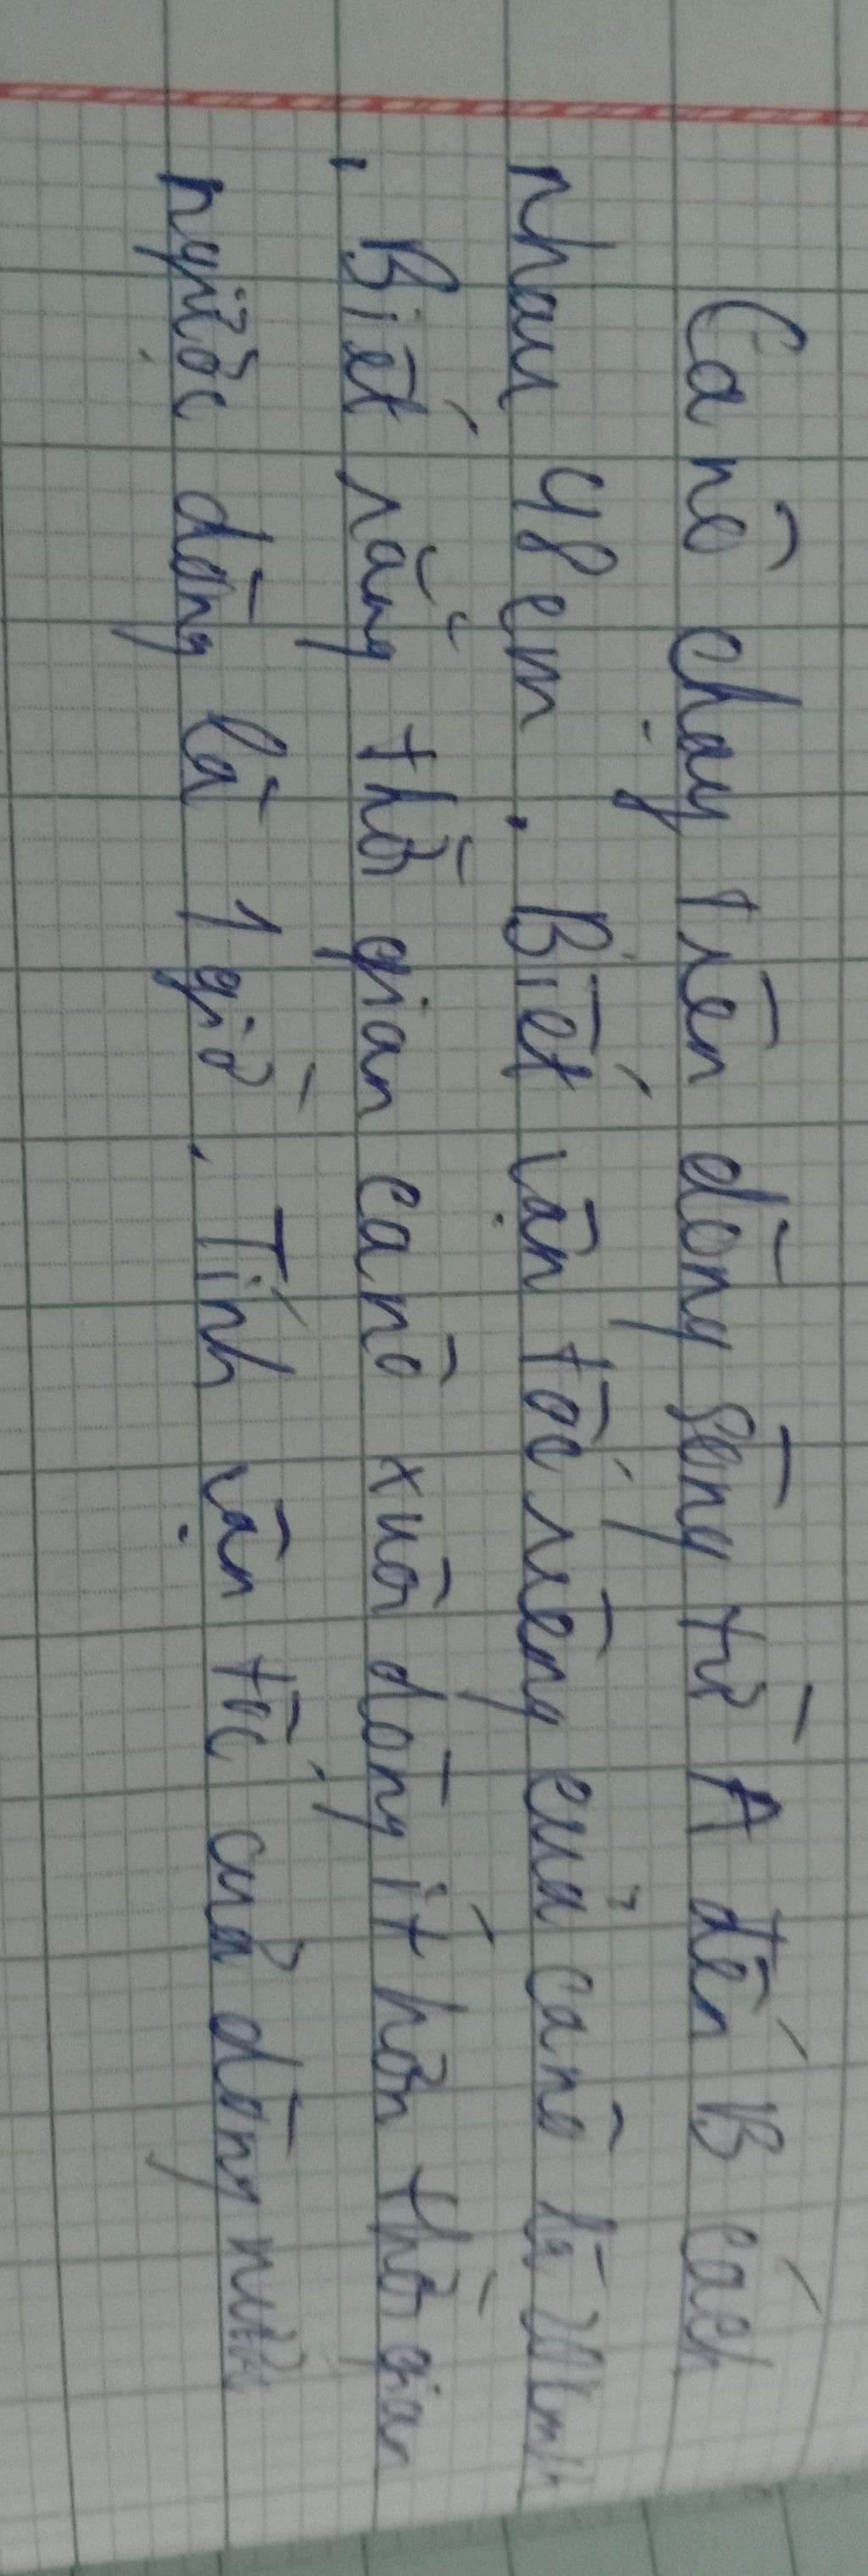 Ca nô chạy trên dòng sông từ A đến B cách
nhau 48 em . Biết vận tốc riêng của ca nô là 20km/h
. Biết rằng thời gian ca nô xuôi dòng ít hơn thời gian
ngược dòng là 1 giờ . Tính vận tốc của dòng nước